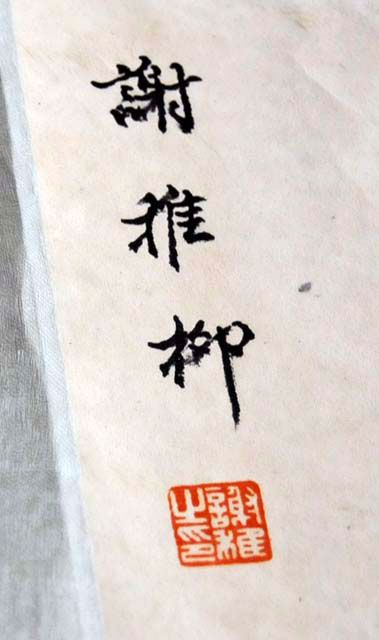 謝
稚
柳
謝稚
之印